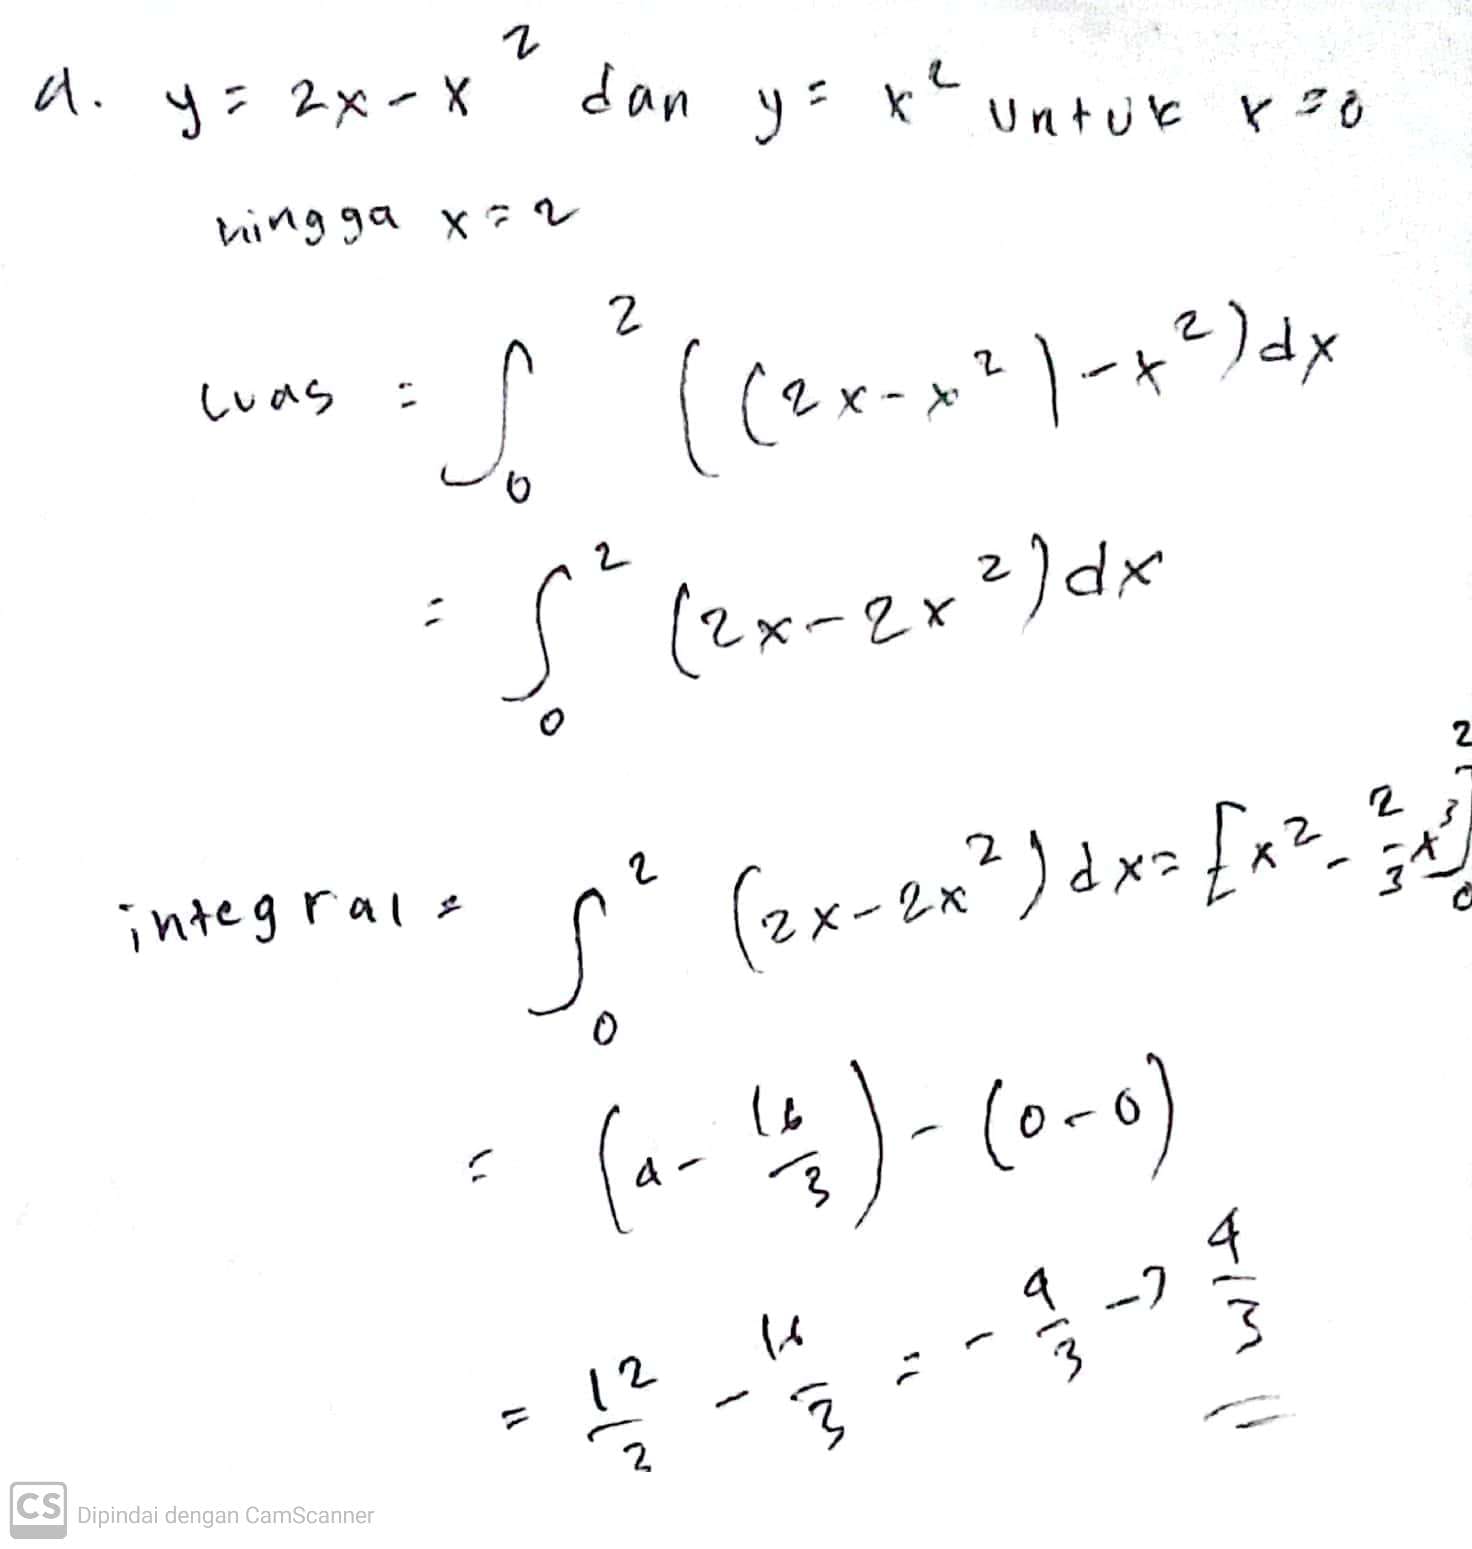 d. y = 2x - x² dan y = x² untuk x = 0
hingga x = 2
Luas = ∫₀² ((2x - x²) - x²) dx
= ∫₀² (2x - 2x²) dx
integral = ∫₀² (2x - 2x²) dx = [x² - 2/3 x³]₀²
= (4 - 16/3) - (0 - 0)
= 12/2 - 16/3 = - 4/3 → 4/3
CS Dipindai dengan CamScanner